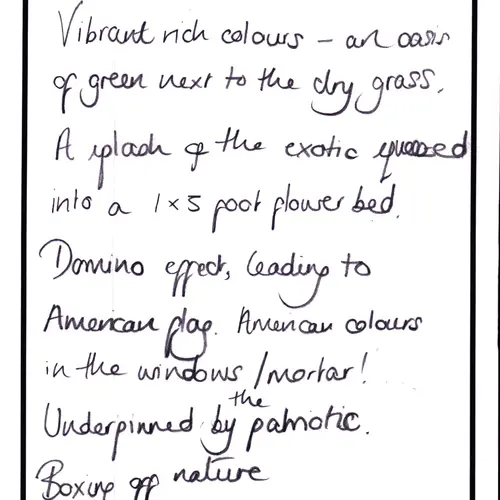 Vibrant rich colours – an oasis
of green next to the dry grass.
A splash of the exotic squeezed
into a 1×5 foot flower bed.
Domino effect, leading to
American flag. American colours
in the windows/mortar!
Underpinned by the patriotic.
Boxing off nature